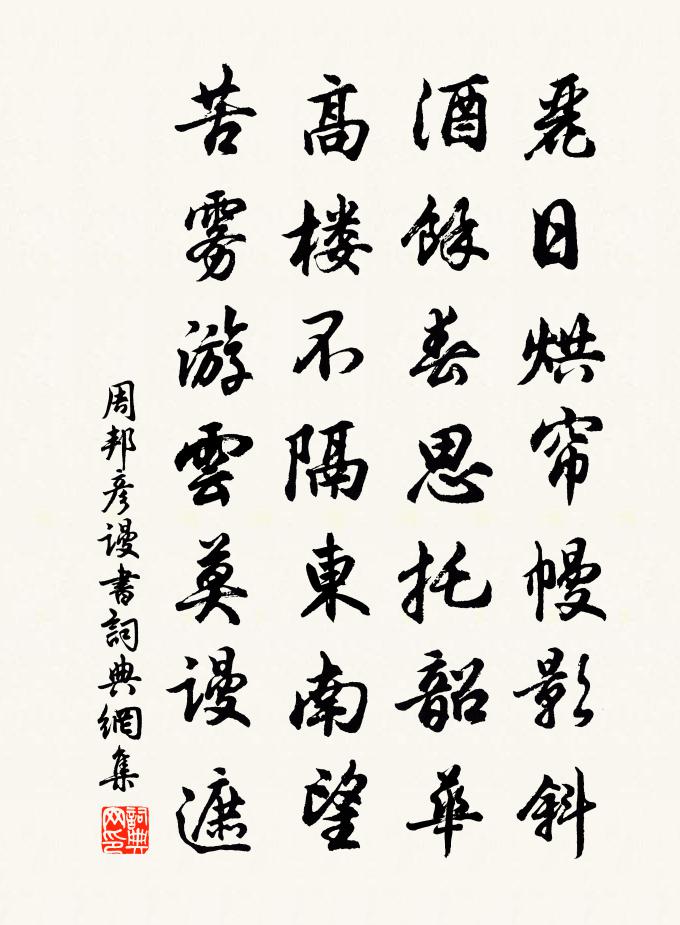 麗日烘帘幔影斜
酒餘春思托韶華
高楼不隔東南望
苦雾游雲莫谩遮
周邦彦谩書詞典網集
詞典网印